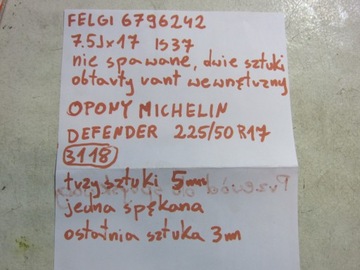 FELGI 6796242
7.5Jx17 IS37
nie spawane, dwie sztuki
obtarty rant wewnętrzny
OPONY MICHELIN
DEFENDER 225/50 R17
3118
trzy sztuki 5mm
jedna spękana
ostatnia sztuka 3mm